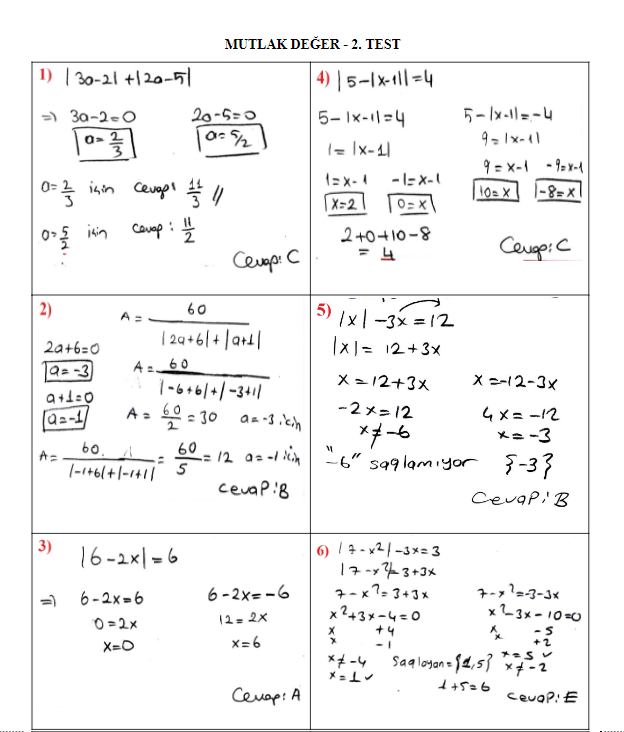 MUTLAK DEĞER - 2. TEST
1) |3a-2|+|2a-5|
=) 3a-2=0 2a-5=0
a=2/3 a=5/2
a=2/3 için cevap: 11/3 //
a=5/2 için cevap: 11/2
Cevap: C
2) A = 60 / |2a+6|+|a+1|
2a+6=0
a=-3
A = 60 / |-6+6|+|-3+1|
a+1=0
a=-1
A = 60/2 = 30 a=-3 için
A = 60 / |-1+6|+|-1+1| = 60/5 = 12 a=-1 için
Cevap: B
3) |6-2x|=6
=) 6-2x=6 6-2x=-6
0=2x 12=2x
x=0 x=6
Cevap: A
4) |5-|x-1||=4
5-|x-1|=4 5-|x-1|=-4
1=|x-1| 9=|x-1|
1=x-1 -1=x-1 9=x-1 -9=x-1
x=2 0=x 10=x -8=x
2+0+10-8
= 4
Cevap: C
5) |x|-3x=12
|x|= 12+3x
x=12+3x x=-12-3x
-2x=12 4x=-12
x≠-6 x=-3
"-6" sağlamıyor {-3}
Cevap: B
6) |7-x²|-3x=3
|7-x²|=3+3x
7-x²=3+3x 7-x²=-3-3x
x²+3x-4=0 x²-3x-10=0
x +4 x -5
x -1 x +2
x≠-4 x=5 ✓
x=1 ✓ x≠-2
Sağlayan={1,5}
1+5=6
Cevap: E